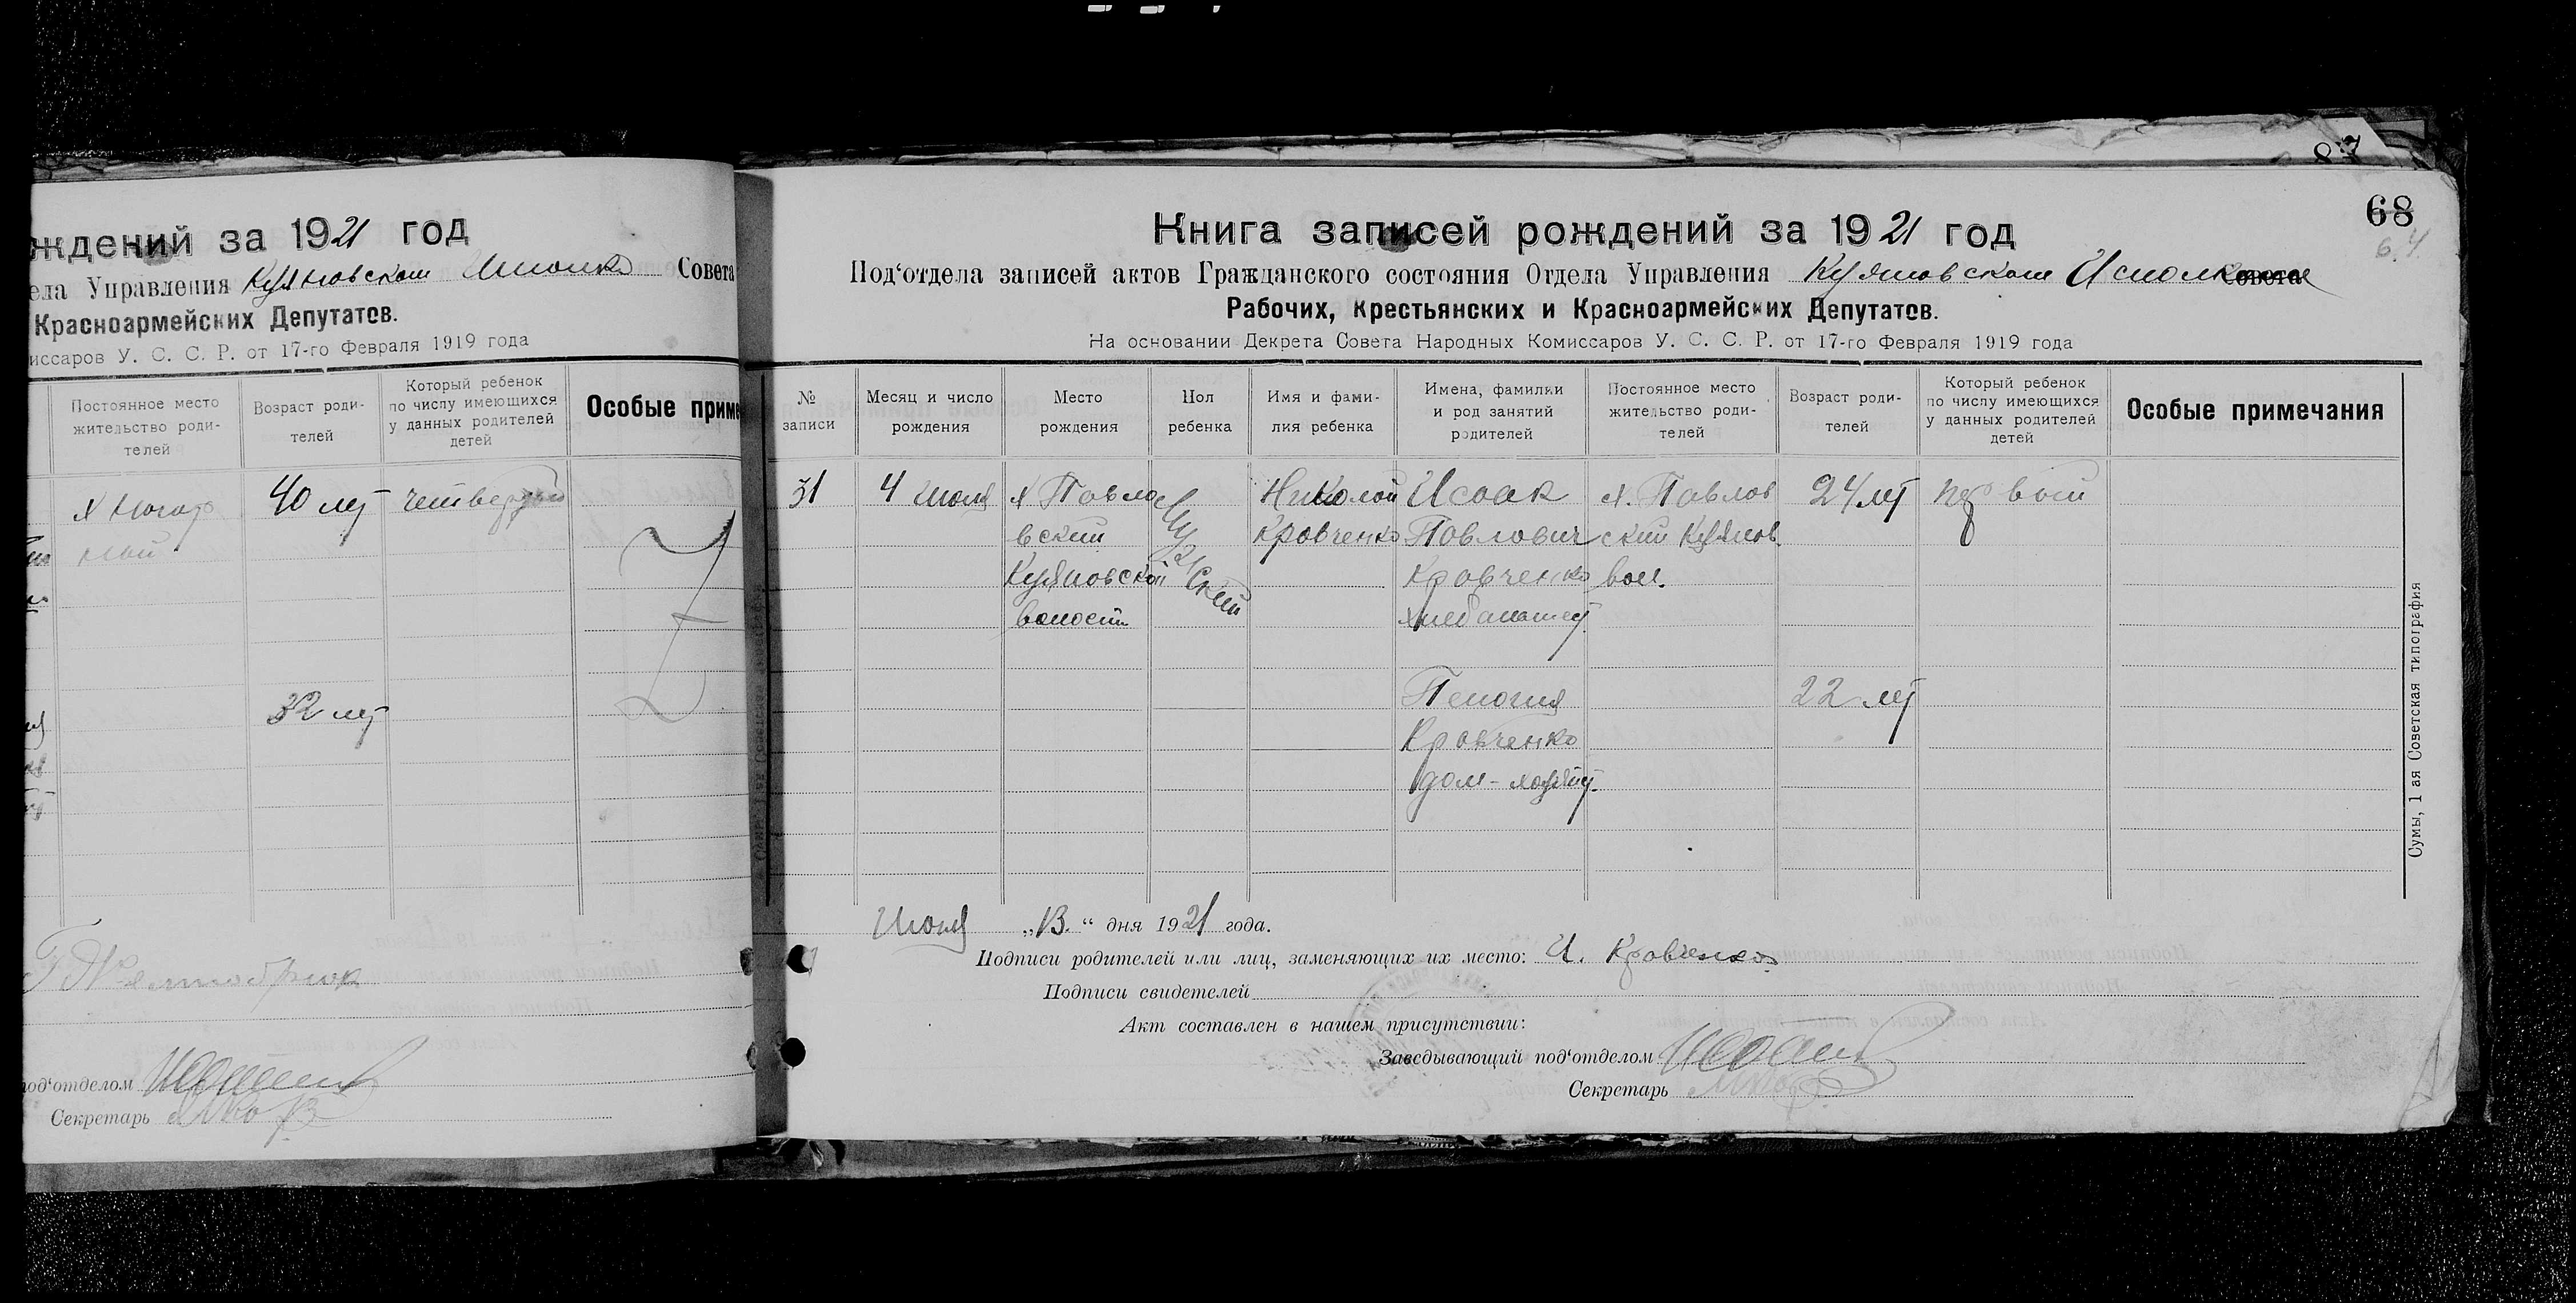 87
ждений за 1921 год
ела Управления Кулповском Исполко Совета
Красноармейских Депутатов.
миссаров У. С. С. Р. от 17-го Февраля 1919 года
Постоянное место жительство роди-телей
Возраст роди-телей
Который ребенок по числу имеющихся у данных родителей детей
Особые приме
40 лет четвертый
32 лет
под‘отделом
Секретарь
68
6.4
Книга записей рождений за 1921 год
Под‘отдела записей актов Гражданского состояния Отдела Управления Исполкома Совета
Рабочих, Крестьянских и Красноармейских Депутатов.
На основании Декрета Совета Народных Комиссаров У. С. С. Р. от 17-го Февраля 1919 года
№ записи
Месяц и число рождения
Место рождения
Пол ребенка
Имя и фами-лия ребенка
Имена, фамилии и род занятий родителей
Постоянное место жительство роди-телей
Возраст роди-телей
Который ребенок по числу имеющихся у данных родителей детей
Особые примечания
31 4 июля х Павло Николай Исаак х. Павлов 24 лет первый
вский Кравченко Павлович ский
мужский
Кравченко вол.
волости хлебопашец
Пелагия 22 лет
Кравченко
дом-хозяй.
Июля „13.“ дня 1921 года.
Подписи родителей или лиц, заменяющих их место: И. Кравченко
Подписи свидетелей
Акт составлен в нашем присутствии:
Заведывающий под‘отделом
Секретарь
Сумы, 1 ая Советская типография